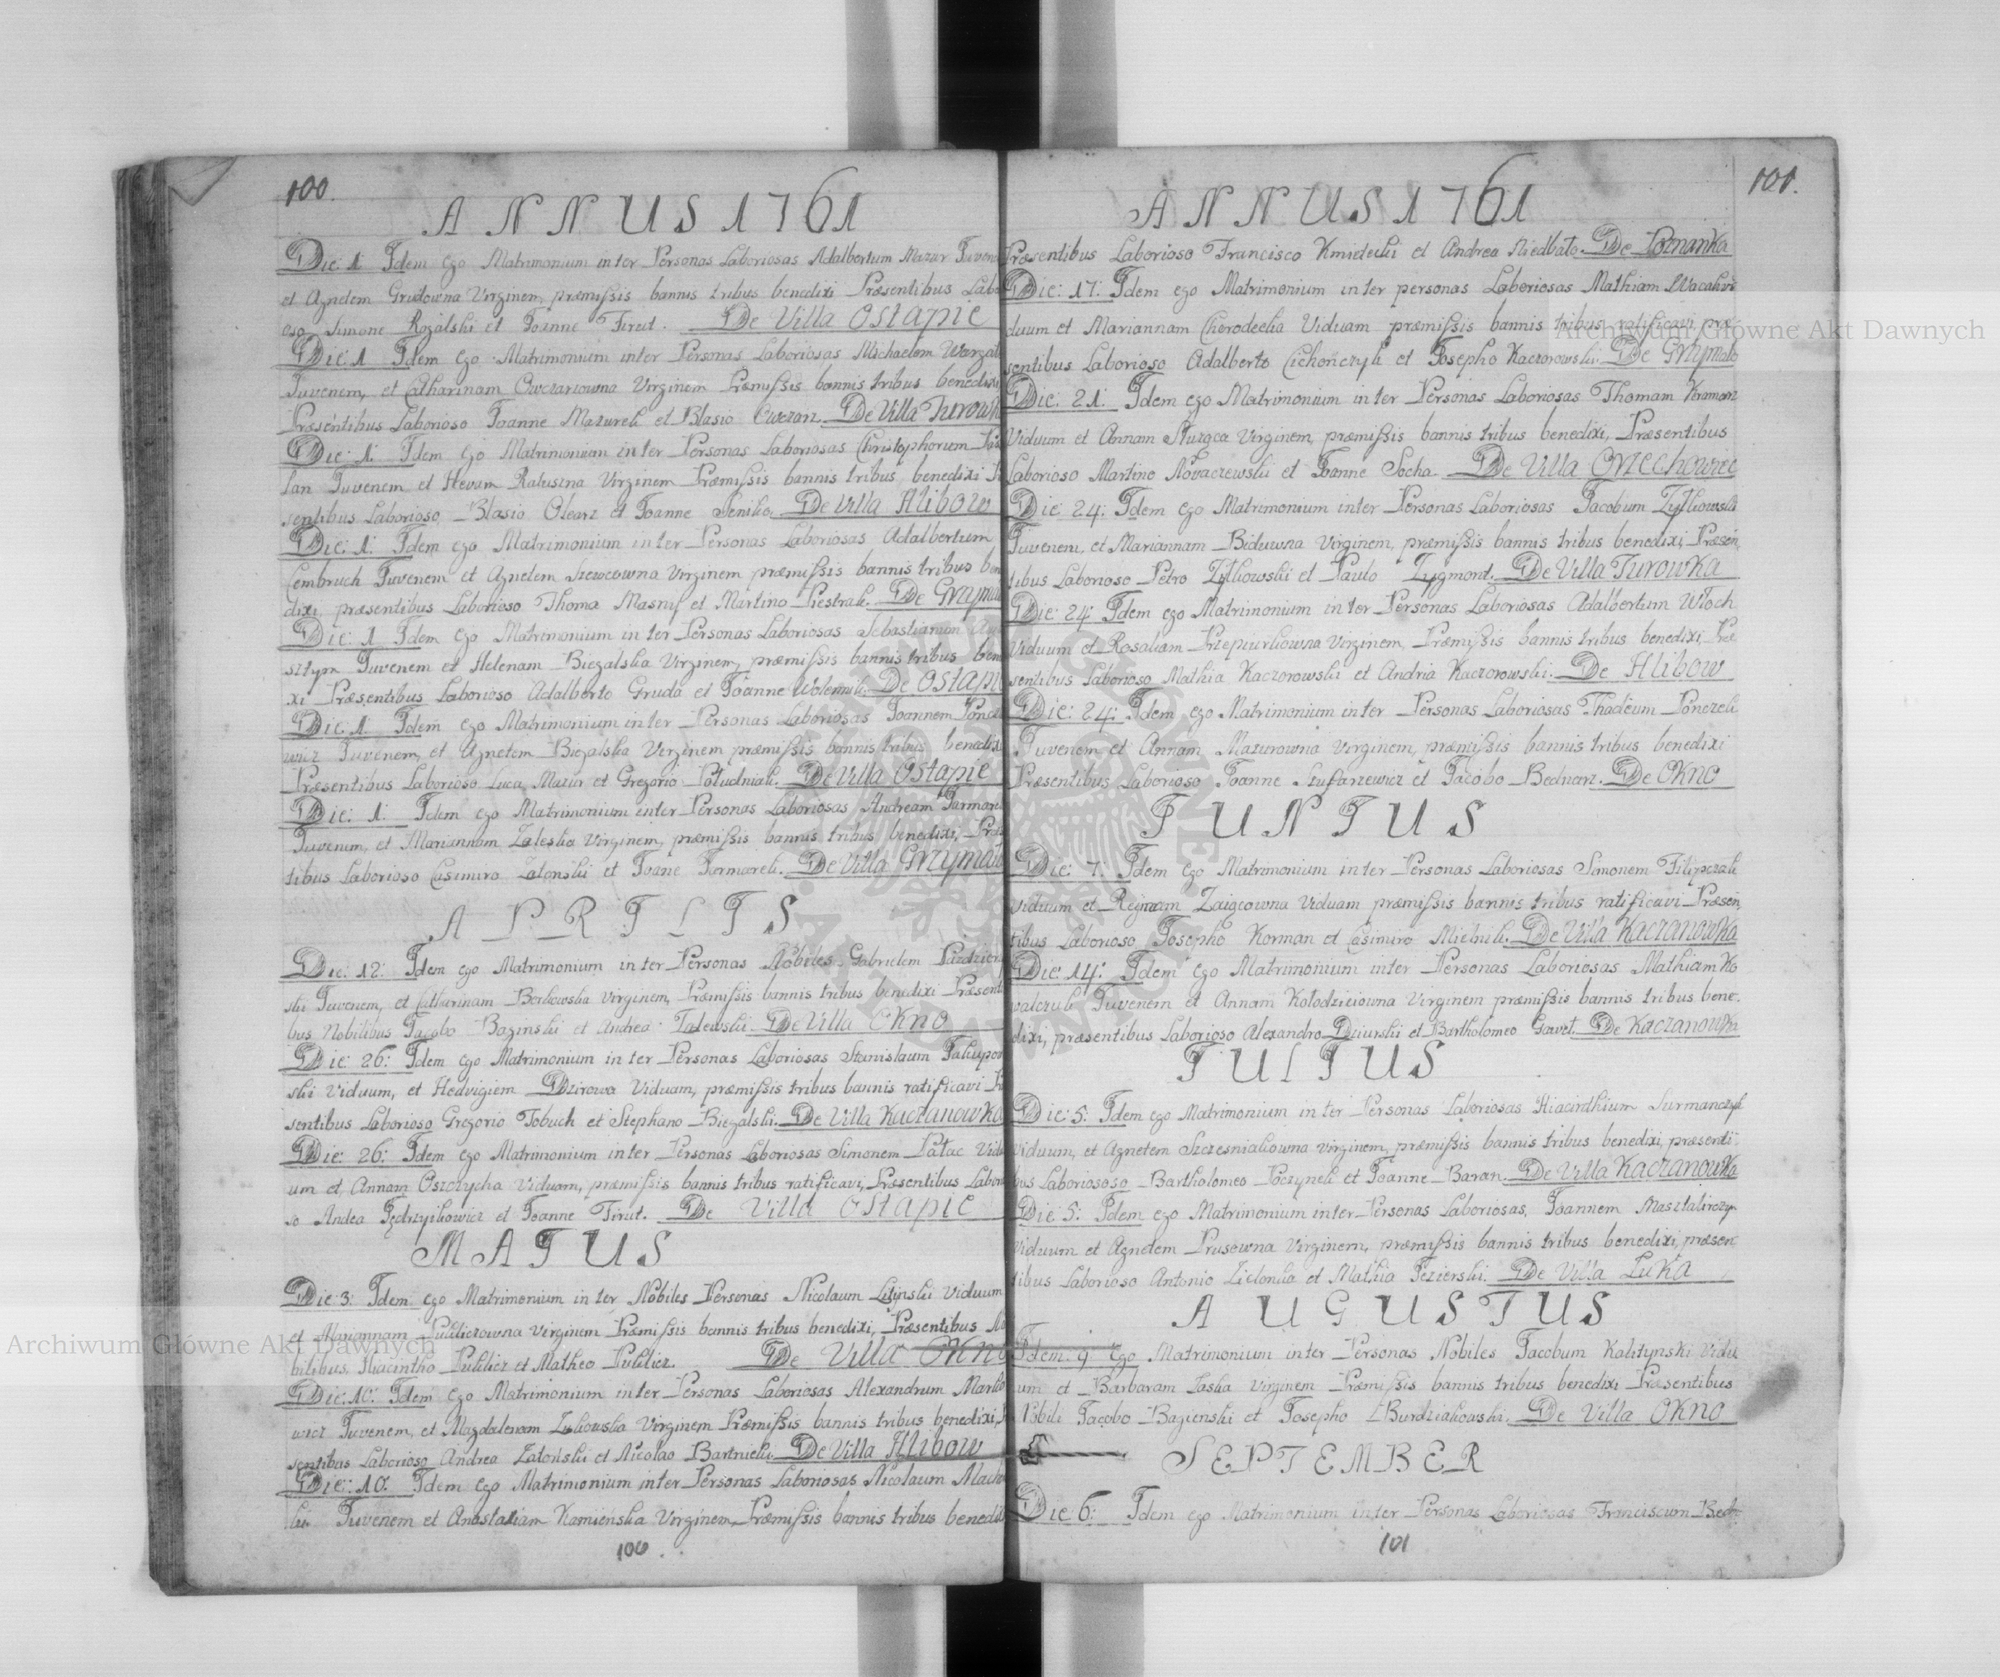 100.
ANNUS 1761
Die 1 Idem ego Matrimonium inter Personas Laboriosas Adalbertum Mazur Juven
et Agnetem Grudowna Virginem, præmissis bannis tribus benedixi Præsentibus Labo
oso Simone Rozalski et Joanne Firut. De Villa Ostapie
Die: 1 Idem Ego Matrimonium inter Personas Laboriosas Michaelem
Juvenem, et Catharinam Owczarzowna Virginem Præmissis bannis tribus benedixi
Præsentibus Laborioso Joanne Mazurek et Blasio Owczarz. De Villa Turowk
Die: 1: Idem Ego Matrimonium inter Personas Laboriosas Christophorum
Juvenem et Hevam Virginem Præmissis bannis tribus benedixi
sentibus Laborioso Blasio Olearz et Joanne De Villa Hlibow
Die: 1: Idem ego Matrimonium inter Personas Laboriosas Adalbertum
Cembruch Juvenem et Agnetem Szewcowna Virginem præmissis bannis tribus ben
dixi, præsentibus Laborioso Thoma et Martino Piestrak. De Grzymal
Die: 1 Idem Ego Matrimonium inter Personas Laboriosas Sebastianum
Juvenem et Helenam Biegalska Virginem, præmissis bannis tribus ben
xi Præsentibus Laborioso Adalberto Gruda et Joanne De Ostapi
Die: 1: Idem ego Matrimonium inter Personas Laboriosas Joannem
wicz Juvenem, et Agnetem Biegalska Virginem præmissis bannis tribus benedix
Præsentibus Laborioso Luca Mazur et Gregorio Poludniak. De Villa Ostapie
Die: 1: Idem ego Matrimonium inter Personas Laboriosas Andream
Juvenem, et Mariannam Zaleska Virginem, præmissis bannis tribus benedixi, Præs
tibus Laborioso Casimiro et De Villa Grzymalo
APRILIS
Die: 12: Idem ego Matrimonium inter Personas Nobiles Gabrielem
ski Juvenem, et Catharinam Borkowska Virginem, Præmissis bannis tribus benedixi Præsenti
bus Nobilibus Jacobo Bazinski et Andrea De Villa Okno
Die: 26: Idem ego Matrimonium inter Personas Laboriosas Stanislaum
ski Viduum, et Hedvigiem Viduam, præmissis tribus bannis ratificavi
sentibus Laborioso Gregorio Tobuch et Stephano Biegalski. De Villa Kaczanowka
Die: 26: Idem ego Matrimonium inter Personas Laboriosas Simonem Patac Vidu
um et Annam Viduam, præmissis bannis tribus ratificavi, Præsentibus Labori
so Andea et Joanne Firut. De Villa Ostapie
MAIUS
Die: 3: Idem ego Matrimonium inter Nobiles Personas Nicolaum Viduum
et Mariannam Virginem Præmissis bannis tribus benedixi, Præsentibus No
bilibus Hiacintho et Matheo De Villa Okno
Die: 10: Idem ego Matrimonium inter Personas Laboriosas Alexandrum Marko
wicz Juvenem, et Magdalenam Zukowska Virginem Præmissis bannis tribus benedixi,
sentibus Laborioso Andrea Zatonski et Nicolao Bartnicki. De Villa Hlibow
Die: 10: Idem ego Matrimonium inter Personas Laboriosas Nicolaum
Juvenem et Anastasiam Kamienska Virginem Præmissis bannis tribus benedix
100
101.
ANNUS 1761
Præsentibus Laborioso Francisco Kmiotecki et Andrea Niedbalo. De Poznanka
Die: 17: Idem ego Matrimonium inter personas Laboriosas Mathiam
duum et Mariannam Viduam præmissis bannis tribus ratificavi præ
sentibus Laborioso Adalberto Cichonczyk et Josepho Kaczorowski. De Grzymalo
Die: 21: Idem ego Matrimonium inter Personas Laboriosas Thomam
Viduum et Annam Virginem, præmissis bannis tribus benedixi, Præsentibus
Laborioso Martino Novaczewski et Joanne Socha. De Villa Orzechowiec
Die 24: Idem ego Matrimonium inter Personas Laboriosas Jacobum Zylkowski
Juvenem, et Mariannam Virginem, præmissis bannis tribus benedixi, Præsen
tibus Laborioso Petro Zylkowski et Paulo Zygmont. De Villa Turowka
Die: 24: Idem ego Matrimonium inter Personas Laboriosas Adalbertum Wloch
Viduum et Rosaliam Przepiurkowna Virginem, Præmissis bannis tribus benedixi, Præ
sentibus Laborioso Mathia Kaczorowski et Andria Kaczorowski. De Hlibow
Die: 24: Idem ego Matrimonium inter Personas Laboriosas Thadeum
Juvenem et Annam Mazurowna Virginem, præmissis bannis tribus benedixi
Præsentibus Laborioso Joanne et Jacobo Bednarz. De Okno
IUNIUS
Die: 7: Idem ego Matrimonium inter Personas Laboriosas Simonem Filipczak
Viduum et Zaigcowna Viduam præmissis bannis tribus ratificavi Præsen
tibus Laborioso Josepho Korman et Casimiro Mielnik. De Villa Kaczanowka
Die: 14: Idem Ego Matrimonium inter Personas Laboriosas Mathiam Ko
walczuk Juvenem et Annam Kolodzieiowna Virginem præmissis bannis tribus bene
dixi, præsentibus Laborioso Alexandro et Bartholomeo De Kaczanowka
IULIUS
Die: 5: Idem ego Matrimonium inter Personas Laboriosas Hiacinthium
Viduum, et Agnetem Szczesniakowna Virginem, præmissis bannis tribus benedixi, præsenti
bus Labriososo Bartholomeo et Joanne Baran. De Villa Kaczanowka
Die 5: Idem ego Matrimonium inter Personas Laboriosas, Joannem
Viduum et Agnetem Prusowna Virginem, præmissis bannis tribus benedixi, præsen
tibus Laborioso Antonio et Mathia Jezierski. De Villa Luka
AUGUSTUS
Idem 9 Ego Matrimonium inter Personas Nobiles Jacobum Kalitynski Vidu
um et Barbaram Virginem Præmissis bannis tribus benedixi Præsentibus
Nobili Jacobo Bazienski et Josepho Burdziakowski. De Villa Okno
SEPTEMBER
Die 6: Idem ego Matrimonium inter Personas Laboriosas Franciscum
101
Archiwum Główne Akt Dawnych
Archiwum Główne Akt Dawnych